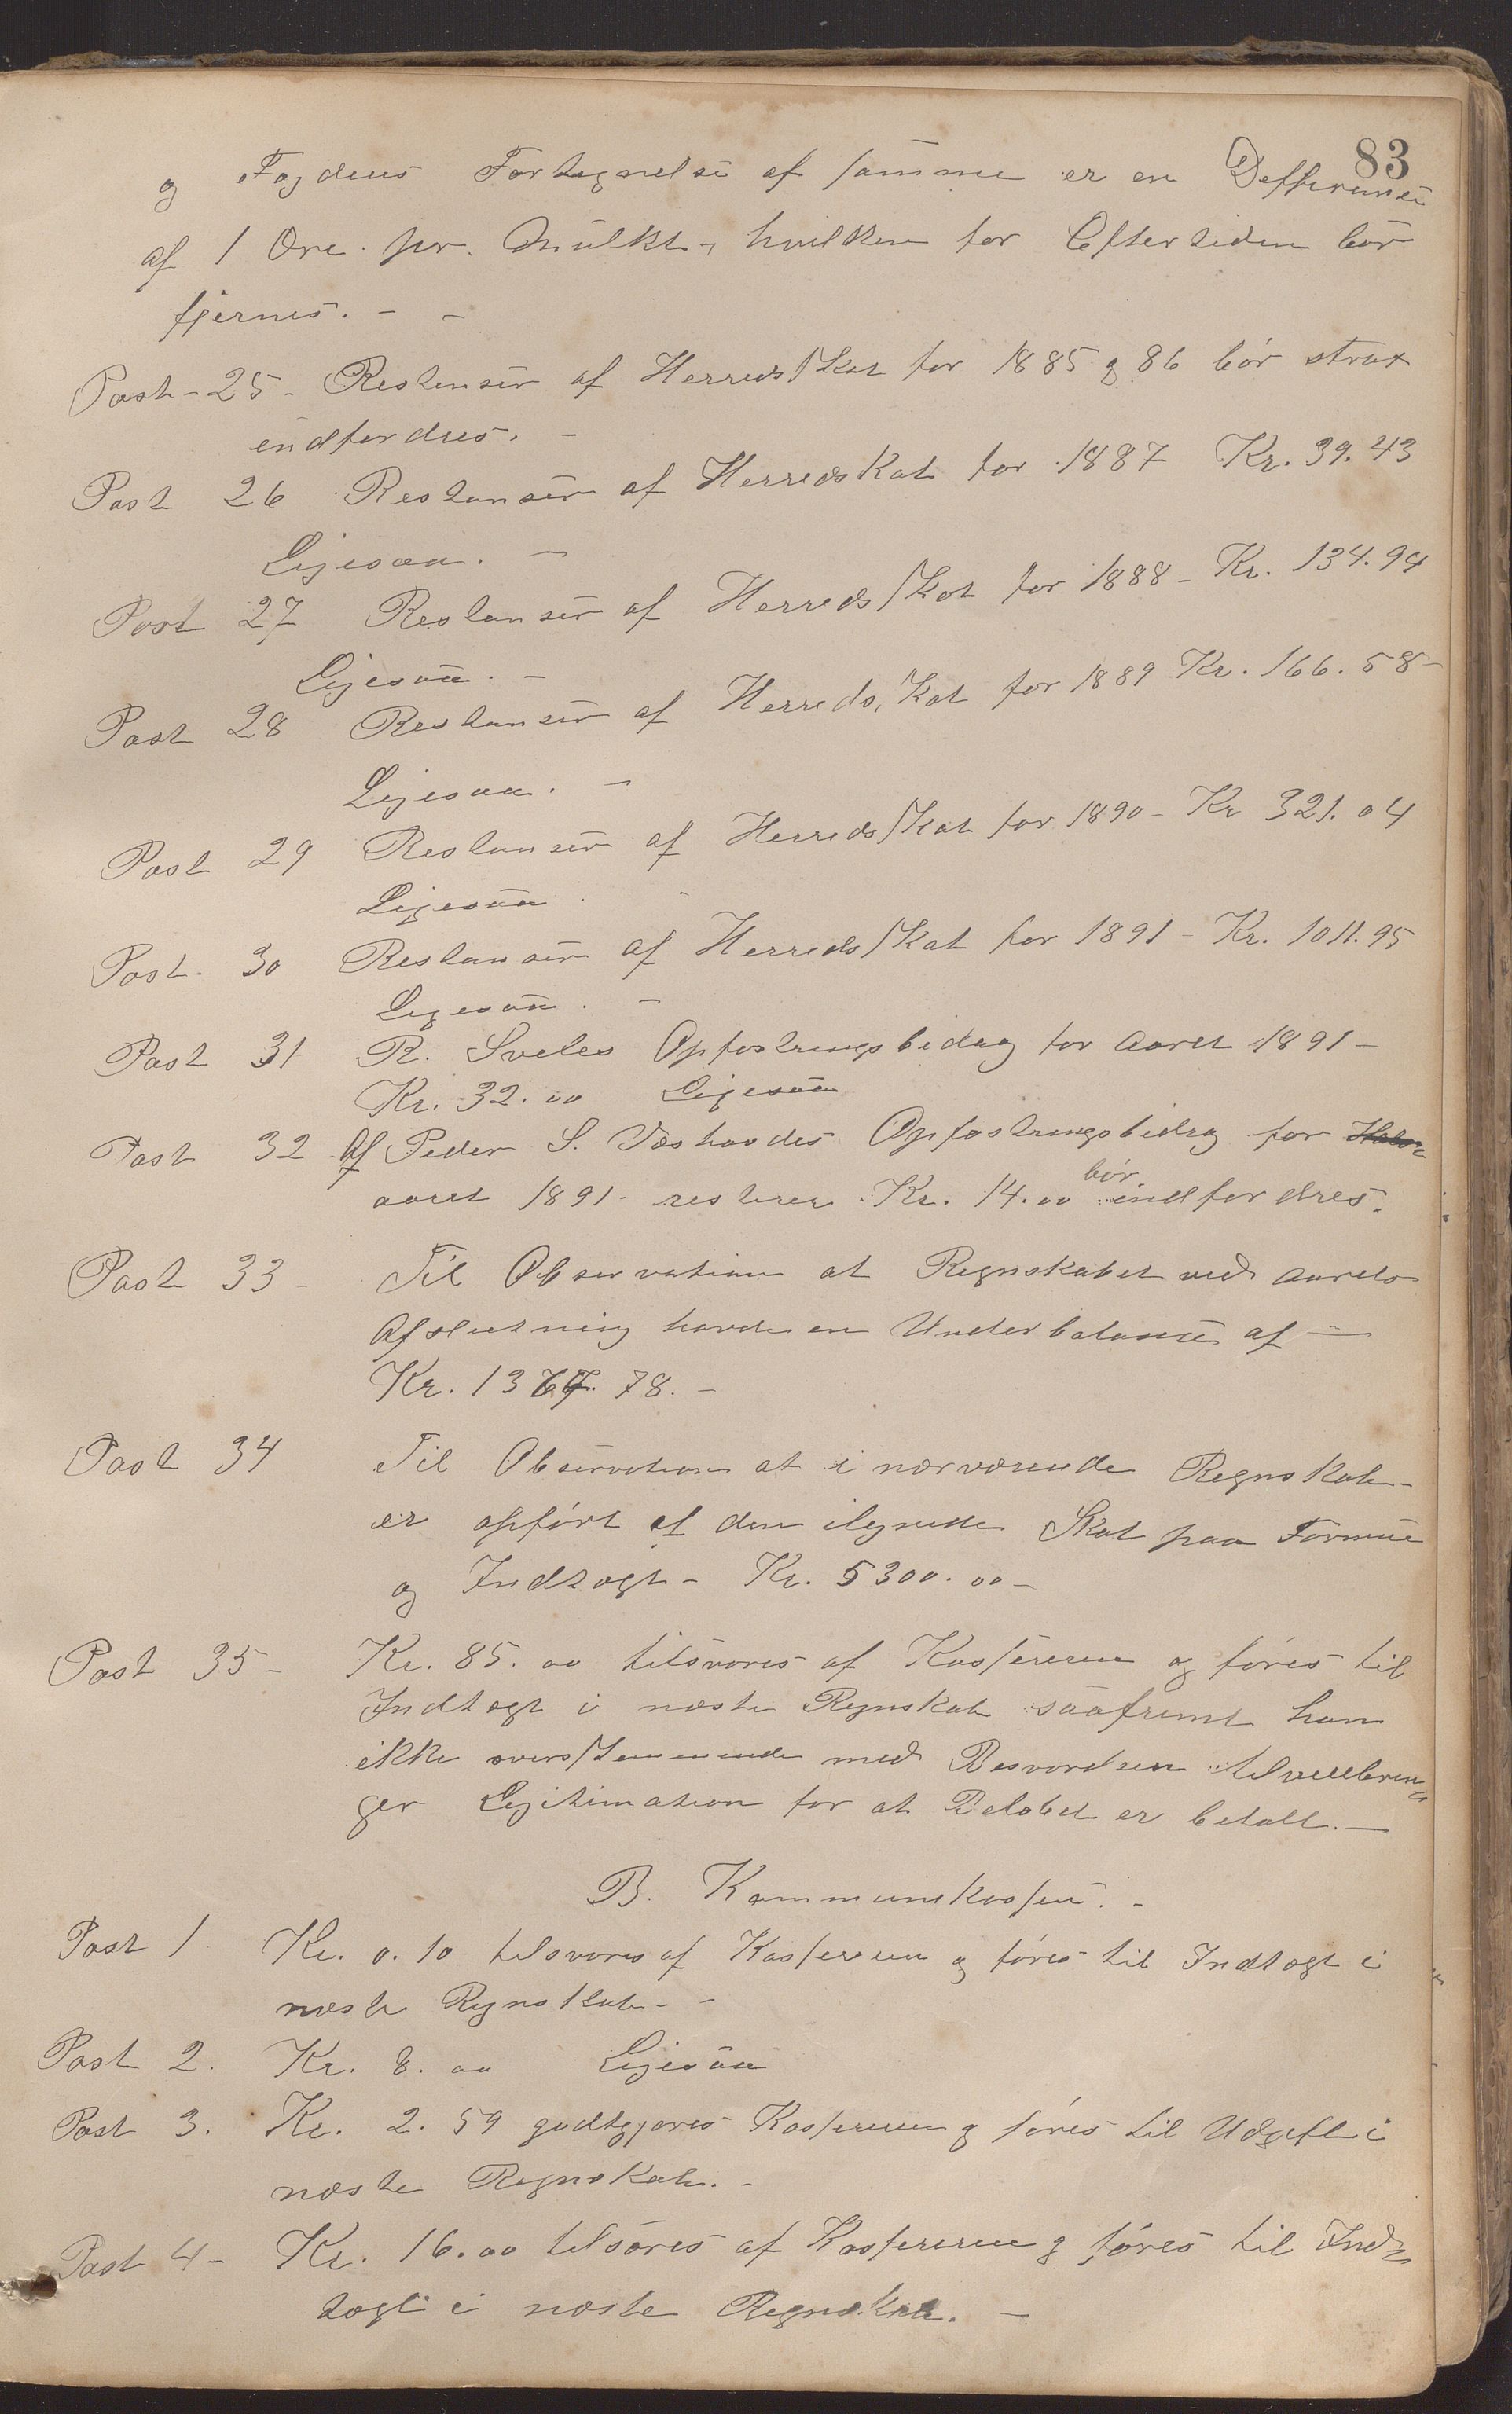 83
og Fogdens Fortegnelse af samme er en Defference
af 1 Øre pr. Mulkt, hvilken for Eftertiden bør
fjernes. - -
Post - 25 - Restanser af Herredsskat for 1885 & 86 bør strax
indfordres. -
Post 26 Restanser af Herredskat for 1887 Kr. 39.43
Ligesaa. -
Post 27 Restanser af Herredsskat for 1888 - Kr. 134.94
Ligesaa. -
Post 28 Restanser af Herredsskat for 1889 Kr. 166.58 -
Ligesaa. -
Post 29 Restanser af Herredsskat for 1890 - Kr 321.04
Ligesaa
Post. 30 Restanser af Herredsskat for 1891 - Kr. 1011.95
Ligesaa. -
Post 31 R. Sveles Opfostringsbidrag for Aaret 1891 -
Kr. 32.00 Ligesaa
Post 32 Af Peder S. Opfostringsbidrag for
aaret 1891 - resterer Kr. 14.00 bør indfordres.
Post 33 - Til Observation at Regnskabet ved Aarets
Afslutning havde en Underbalance af -
Kr. 1367.78. -
Post 34 Til Observation at i nærværende Regnskab -
er opført af den ilignede Skat paa Formue
og Indtægt - Kr. 5300.00 -
Post 35 - Kr. 85.00 tilsvares af Kassereren og føres til
Indtægt i næste Regnskab saafremt han
ikke overs/temmende med Besvarelsen tilveiebrin-
ger Legitimation for at Beløbet er betalt. -
B. Kommunekassen. -
Post 1 Kr. 0.10 tilsvares af Kassereren og føres til Indtægt i
næste Regnskab - -
Post 2. Kr. 8.00 Ligesaa
Post 3. Kr. 2.59 godtgjøres Kassereren & føres til Udgift i
næste Regnskab. -
Post 4 - Kr. 16.00 tilsvares af Kassereren & føres til Ind-
tægt i næste Regnskab. -